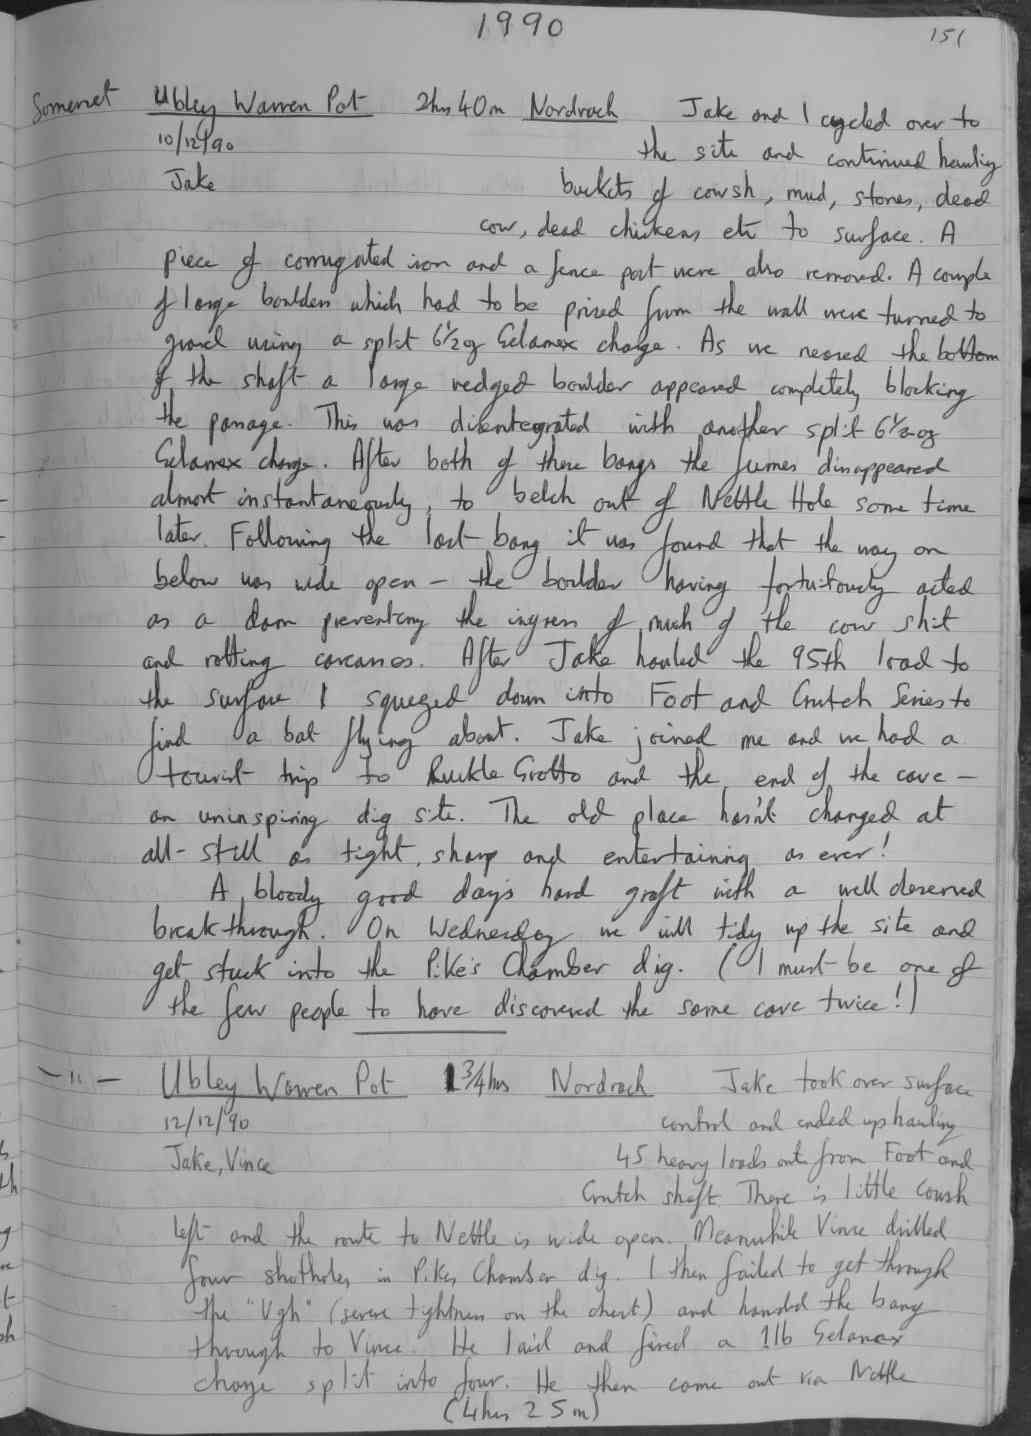 1990
151
Somerset Ubley Warren Pot 2hrs 40m Nordrach Jake and I cycled over to
10/12/90 the site and continued hauling
Jake buckets of cowsh, mud, stones, dead
cow, dead chickens etc to surface. A
piece of corrugated iron and a fence post were also removed. A couple
of large boulders which had to be prised from the wall were turned to
gravel using a split 6½oz Gelamex charge. As we neared the bottom
of the shaft a large wedged boulder appeared completely blocking
the passage. This was disintegrated with another split 6½oz
Gelamex charge. After both of these bangs the fumes disappeared
almost instantaneously, to belch out of Nettle Hole some time
later. Following the last bang it was found that the way on
below was wide open - the boulder having fortuitously acted
as a dam preventing the ingress of much of the cow shit
and rotting carcasses. After Jake hauled the 95th load to
the surface I squeezed down into Foot and Crutch Series to
find a bat flying about. Jake joined me and we had a
tourist trip to Ruckle Grotto and the end of the cave -
an uninspiring dig site. The old place hasn't changed at
all - still as tight, sharp and entertaining as ever!
A bloody good day's hard graft with a well deserved
breakthrough. On Wednesday we will tidy up the site and
get stuck into the Pike's Chamber dig. (I must be one of
the few people to have discovered the same cave twice!)
-"- Ubley Warren Pot 1¾hrs Nordrach Jake took over surface
12/12/90 control and ended up hauling
Jake, Vince 45 heavy loads out from Foot and
Crutch shaft. There is little cowsh
left and the route to Nettle is wide open. Meanwhile Vince drilled
four shotholes in Pikes Chamber dig. I then failed to get through
the "Ugh" (severe tightness on the chest) and handed the bang
through to Vince. He laid and fired a 1lb Gelamex
charge split into four. He then came out via Nettle
(4hrs 25m)